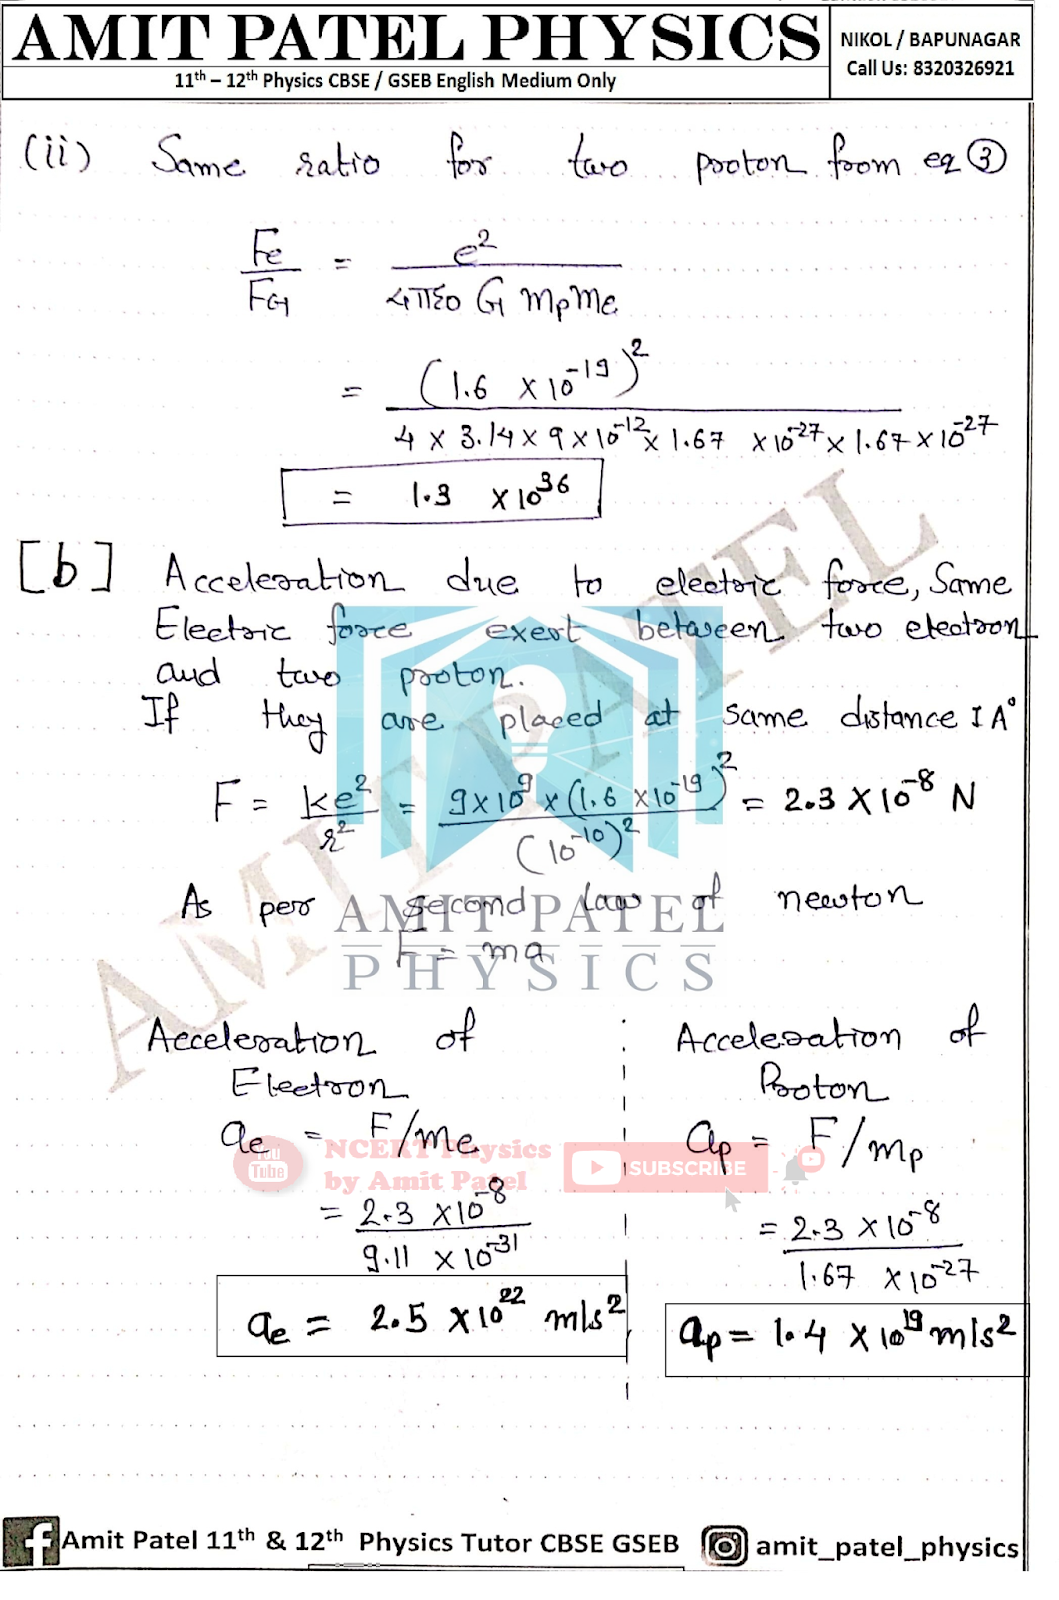 AMIT PATEL PHYSICS
11th – 12th Physics CBSE / GSEB English Medium Only
NIKOL / BAPUNAGAR
Call Us: 8320326921
(ii) Same ratio for two proton from eq ③
Fe/FG = e²/4πε0 G mpme
= (1.6 × 10⁻¹⁹)²/4 × 3.14 × 9 × 10⁻¹² × 1.67 × 10⁻²⁷ × 1.67 × 10⁻²⁷
= 1.3 × 10³⁶
[b] Acceleration due to electric force, Same
Electric force exert between two electron
and two proton.
If they are placed at same distance 1 A°
F = ke²/r² = 9×10⁹ × (1.6 × 10⁻¹⁹)²/(10⁻¹⁰)² = 2.3 × 10⁻⁸ N
As per second law of newton
F = ma
AMIT PATEL
PHYSICS
AMIT PATEL
Acceleration of
Electron
ae = F/me
= 2.3 × 10⁻⁸/9.11 × 10⁻³¹
ae = 2.5 × 10²² m/s²
Acceleration of
Proton
ap = F/mp
= 2.3 × 10⁻⁸/1.67 × 10⁻²⁷
ap = 1.4 × 10¹⁹ m/s²
You Tube
NCERT Physics
by Amit Patel
SUBSCRIBE
f Amit Patel 11th & 12th Physics Tutor CBSE GSEB
amit_patel_physics